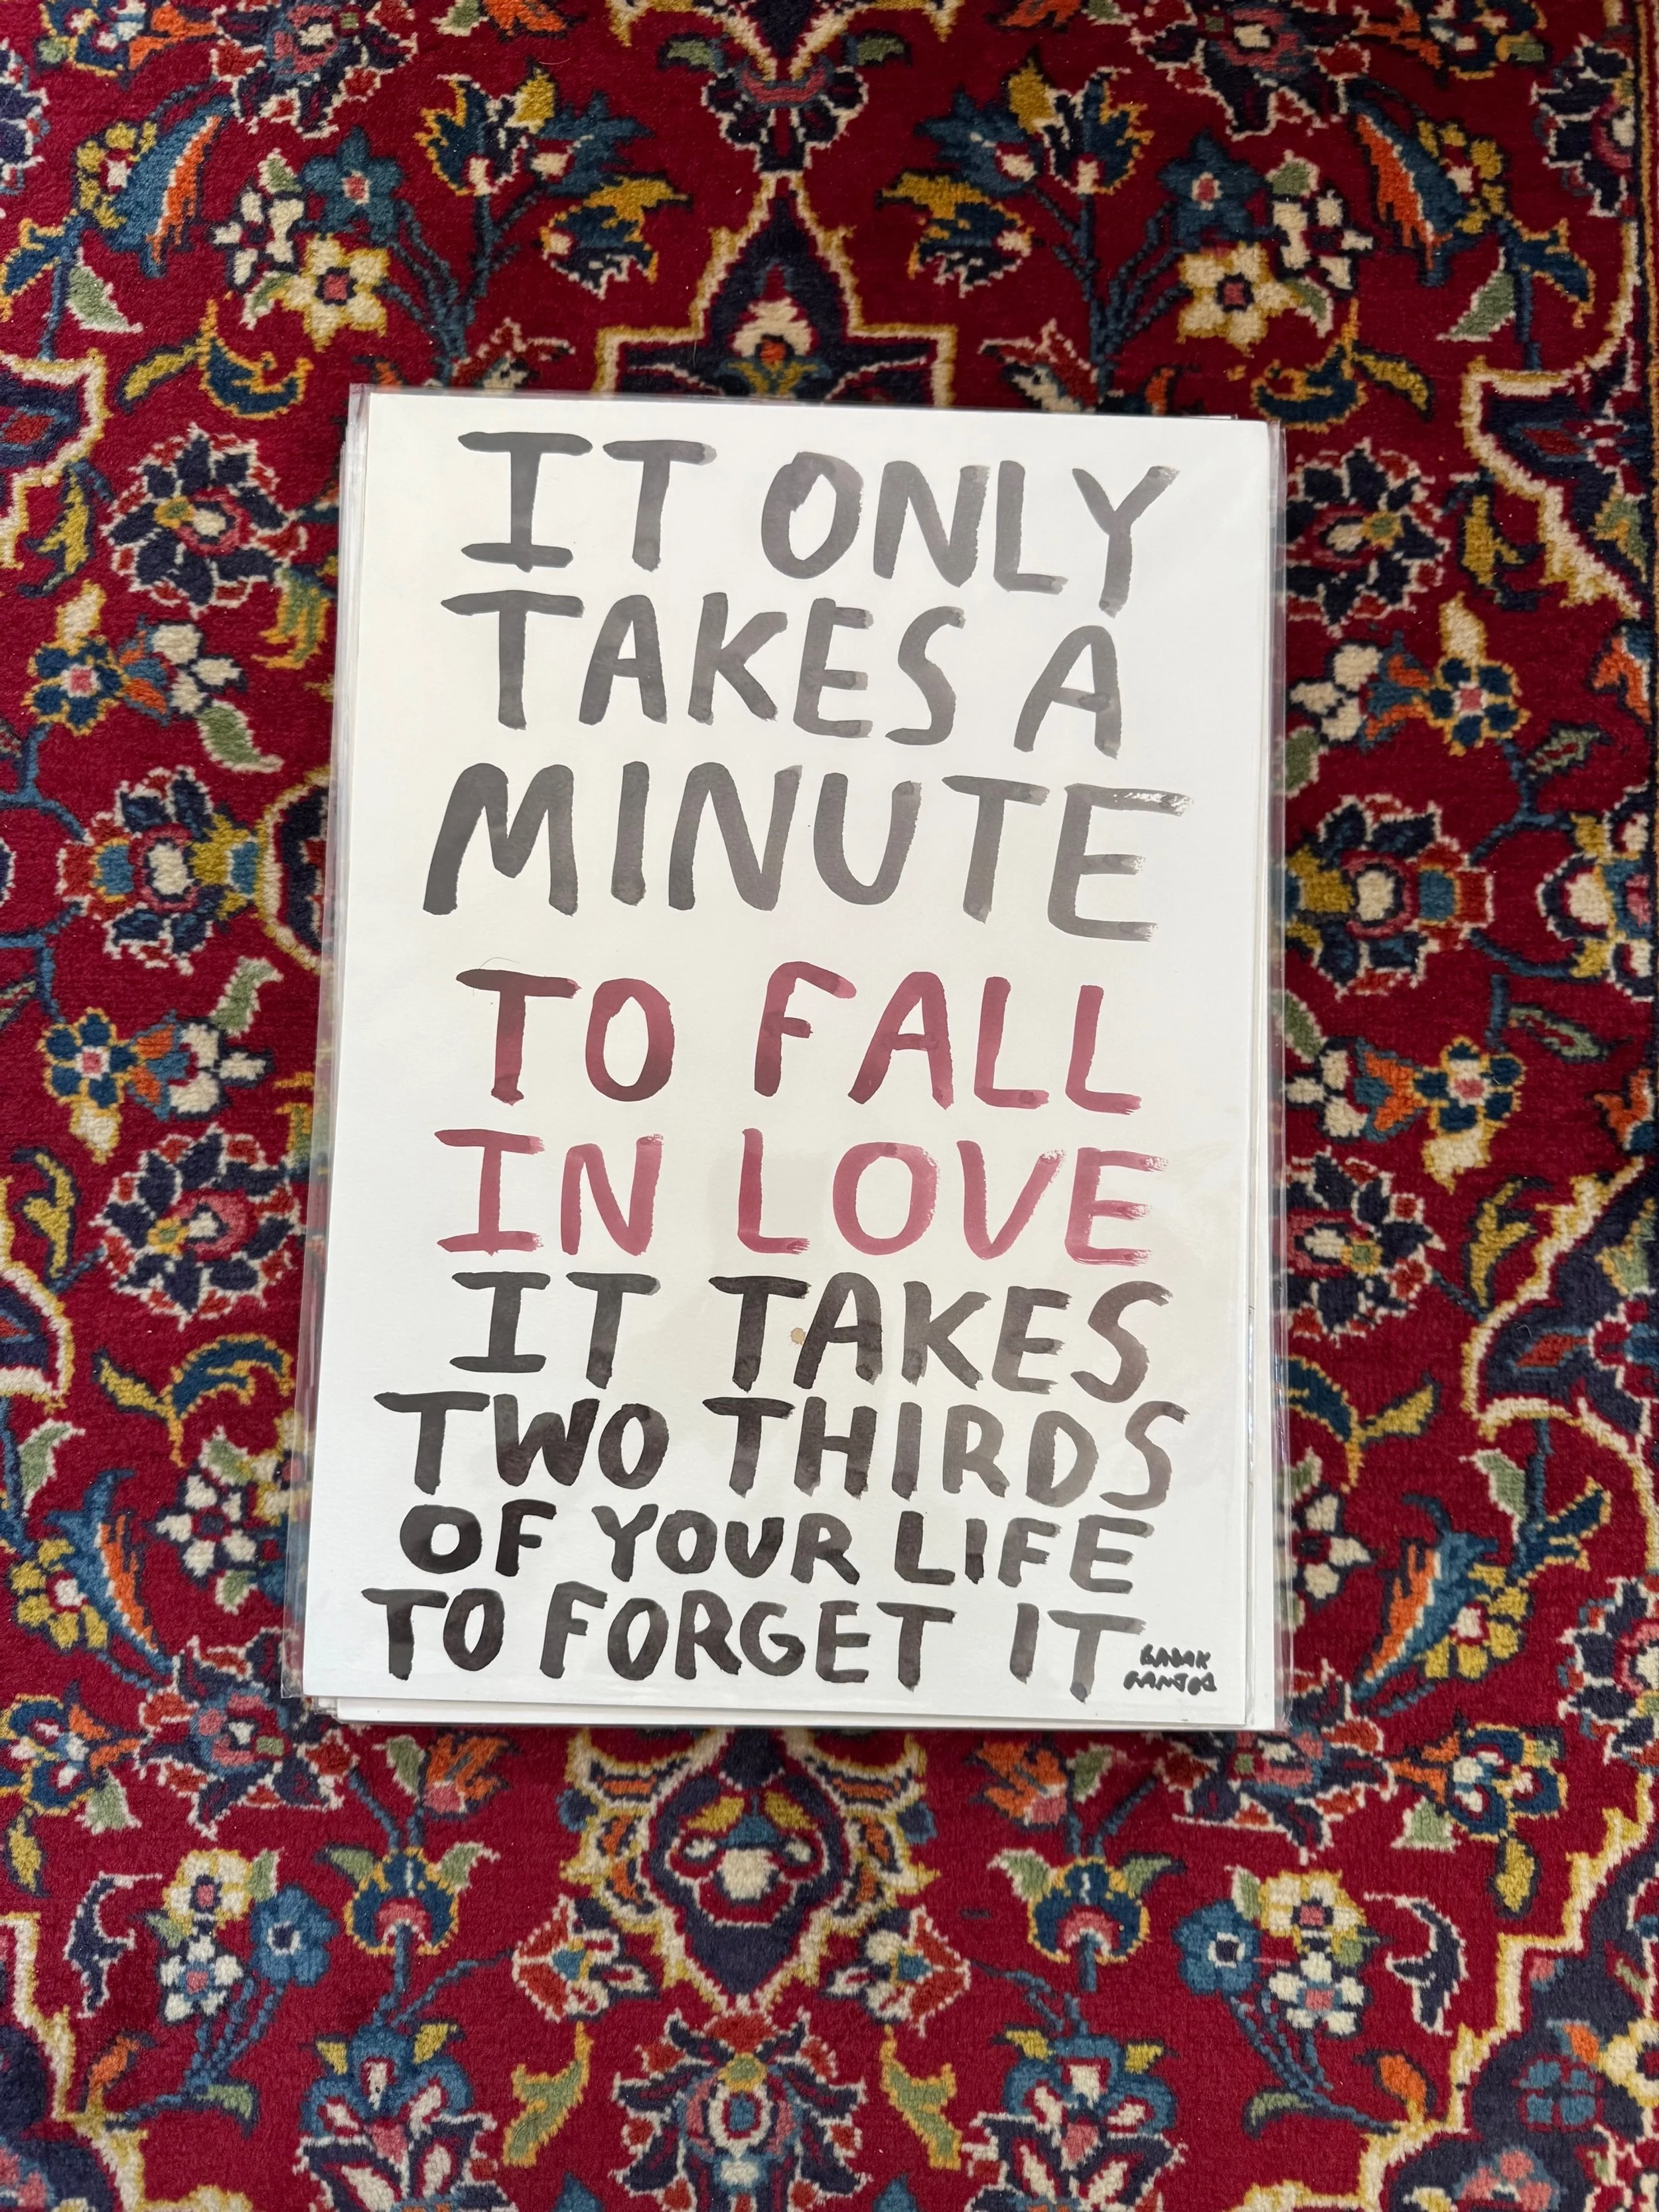 IT ONLY
TAKES A
MINUTE
TO FALL
IN LOVE
IT TAKES
TWO THIRDS
OF YOUR LIFE
TO FORGET IT
BABAK
GANJEI